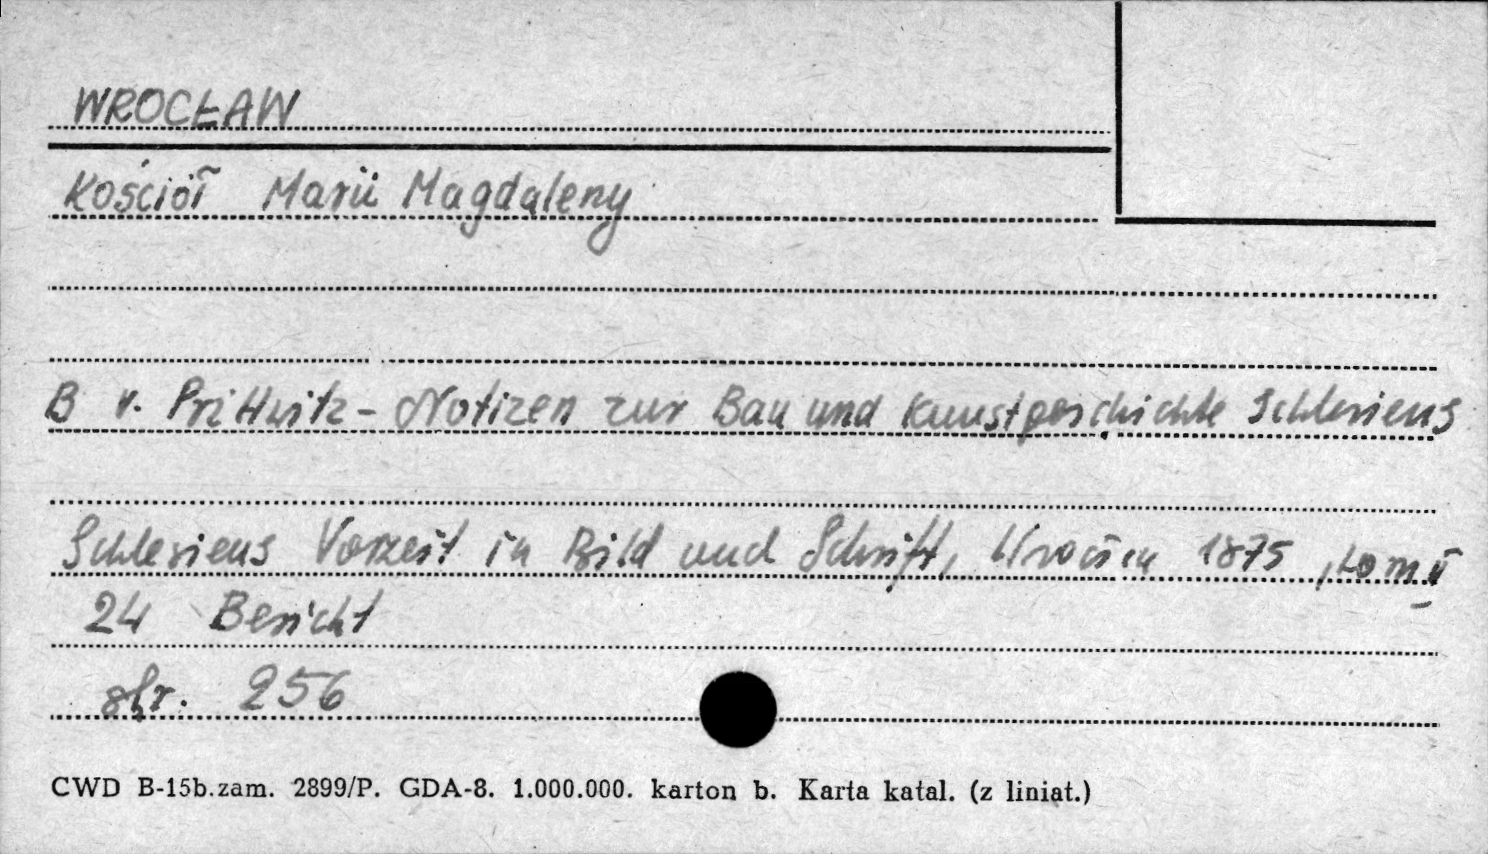 WROCŁAW
Kościół Marii Magdaleny
B v. Prittwitz - Notizen zur Bau und Kunstgeschichte Schlesiens
Schlesiens Vorzeit in Bild und Schrift, 1875, tom II
24 Bericht
str. 256
CWD B-15b.zam. 2899/P. GDA-8. 1.000.000. karton b. Karta katal. (z liniat.)